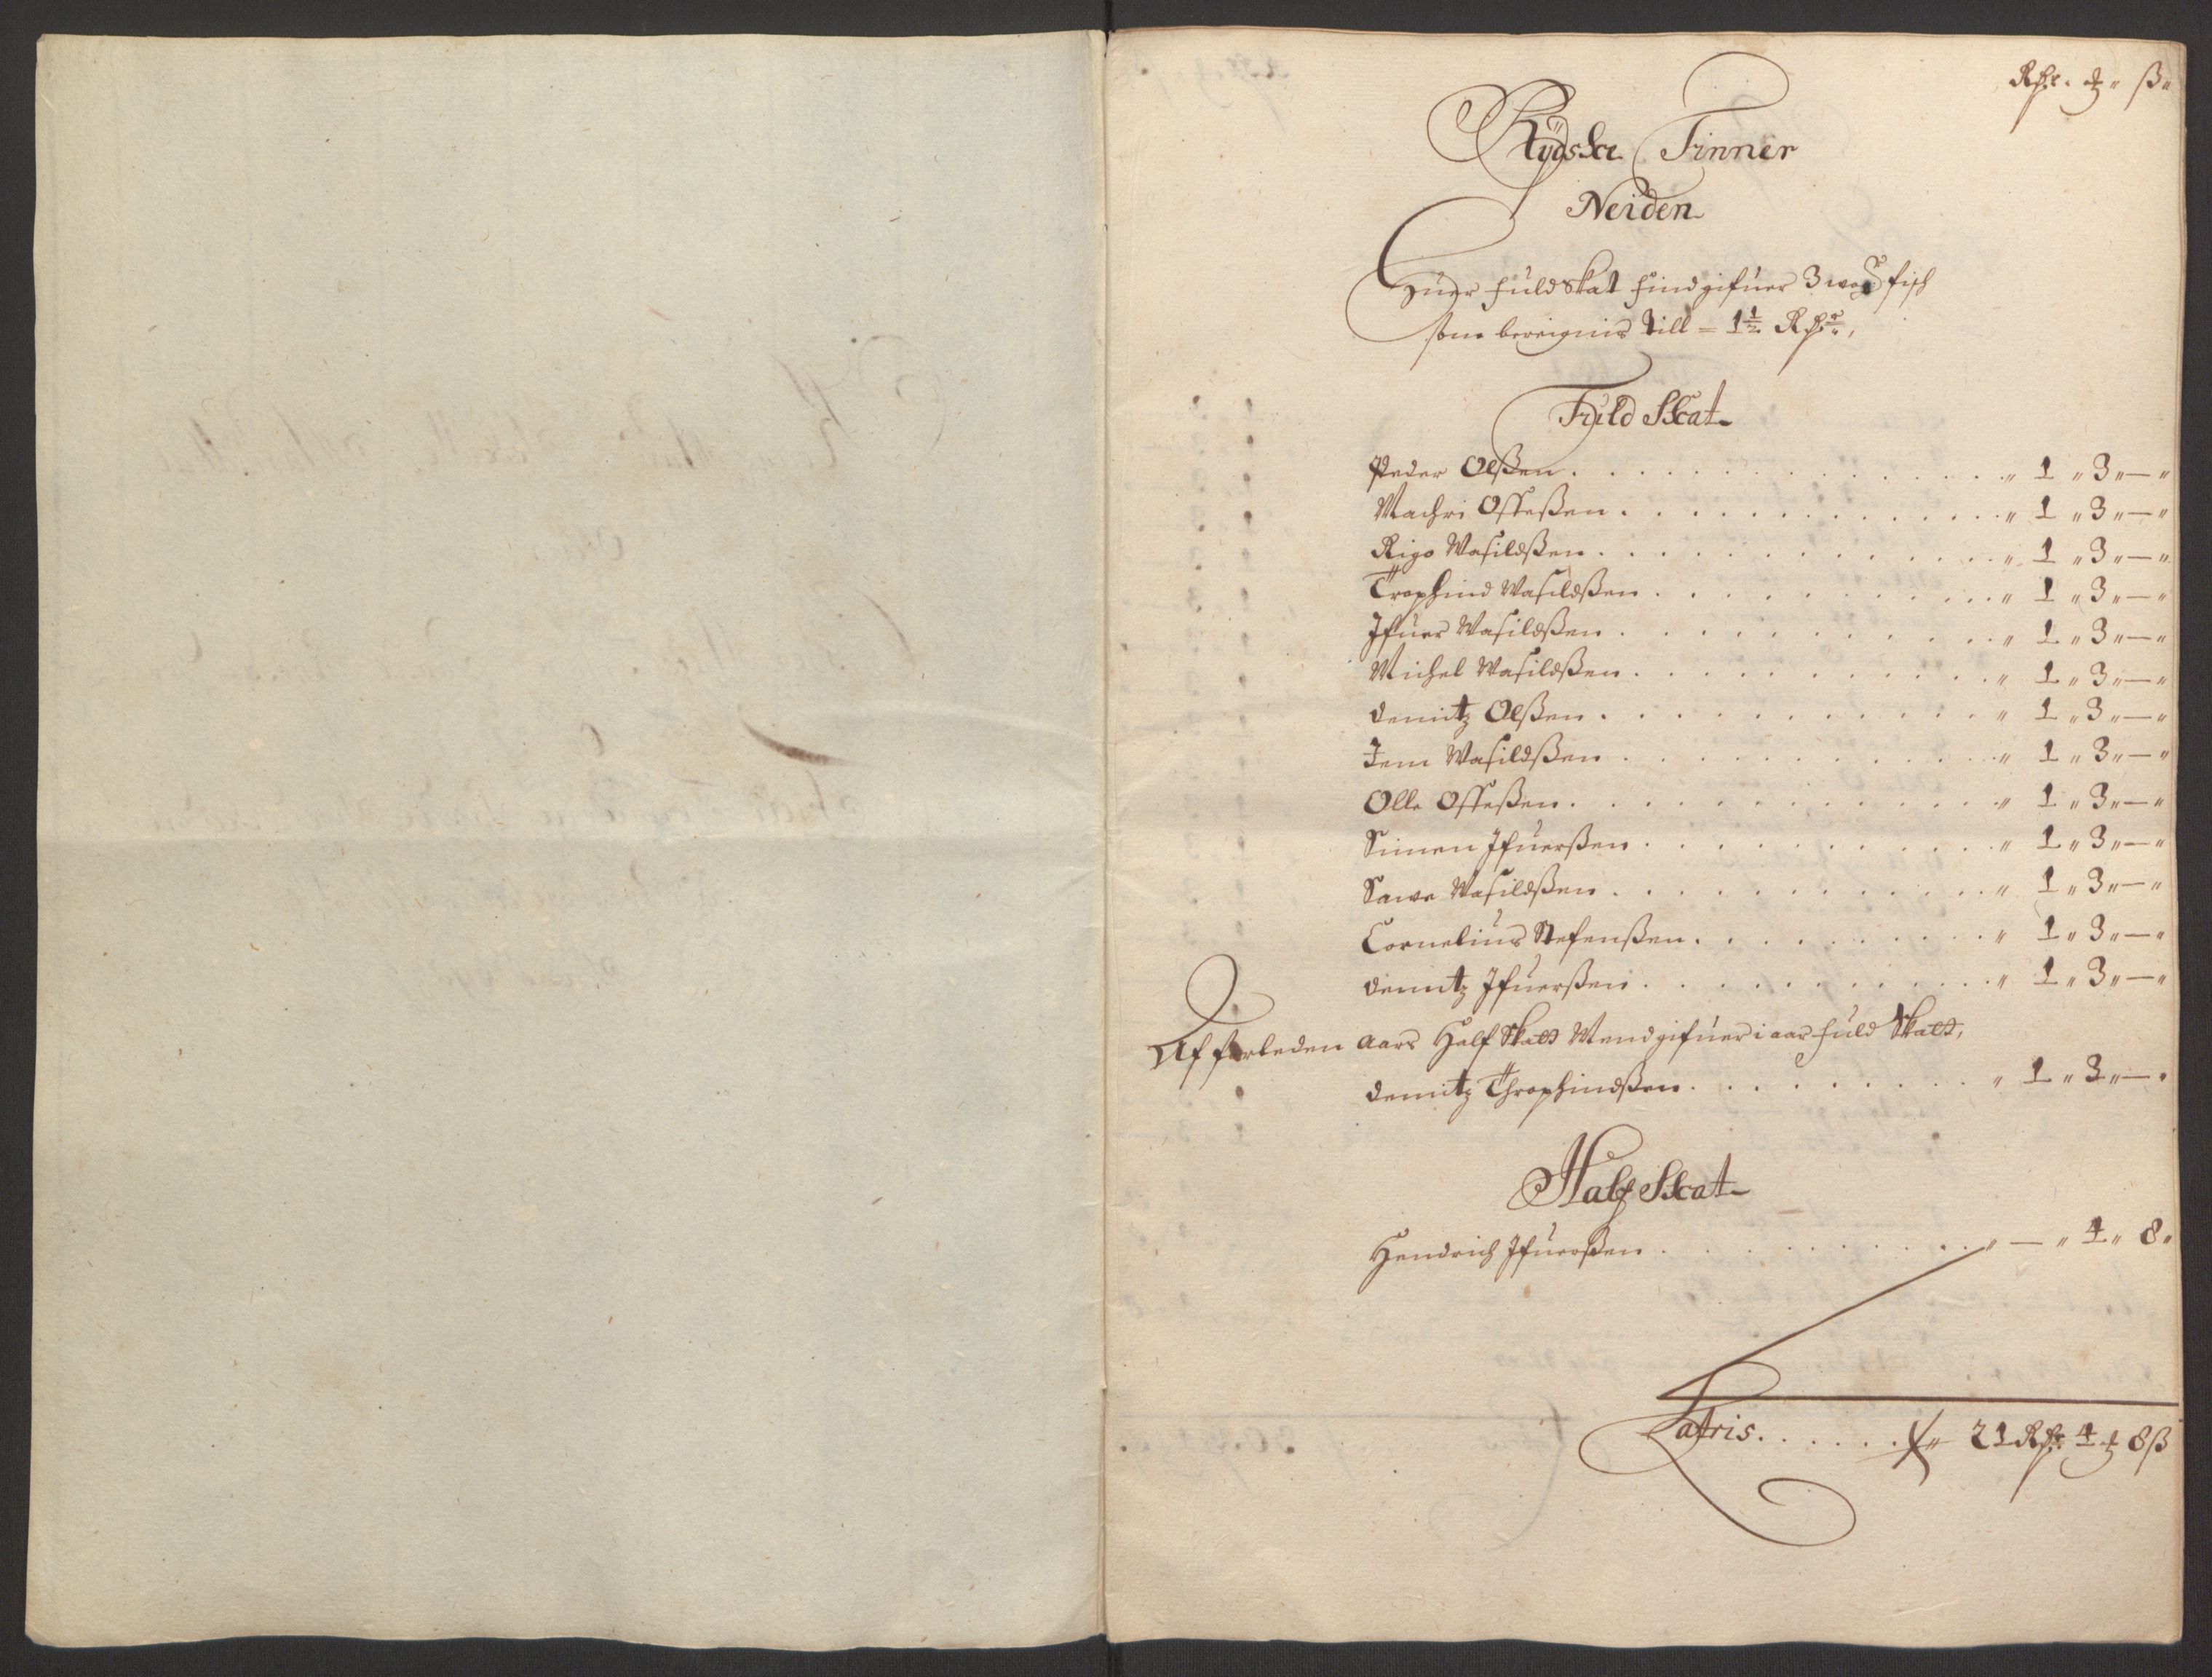 Rdr. ort. ß.
Rydske Finner
Neiden
Huer fuld skat find gifuer 3 wog fisch
som beregnis till = 1½ Rdr.
Fuld Skat
Peder Olßen . . . 1 " 3 " — "
Machri Offeßen . . . 1 " 3 " — "
Rigo Wasildßen . . . 1 " 3 " — "
Trophind Wasildßen . . . 1 " 3 " — "
Ifuer Wasildßen . . . 1 " 3 " — "
Michel Wasildßen . . . 1 " 3 " — "
Demitz Olßen . . . 1 " 3 " — "
Jem Wasildßen . . . 1 " 3 " — "
Olle Offeßen . . . 1 " 3 " — "
Simen Ifuerßen . . . 1 " 3 " — "
Sawe Wasildßen . . . 1 " 3 " — "
Cornelius Stefenßen . . . 1 " 3 " — "
Demitz Ifuerßen . . . 1 " 3 " — "
Af forleden aars Half Skatt Mend gifuer i aar fuld Skatt,
Demitz Throphindßen . . . 1 " 3 " — "
Half Skat
Hendrich Ifuerßen . . . " — " 4 " 8 "
Latris . . . 21 Rdr 4 ort 8 ß